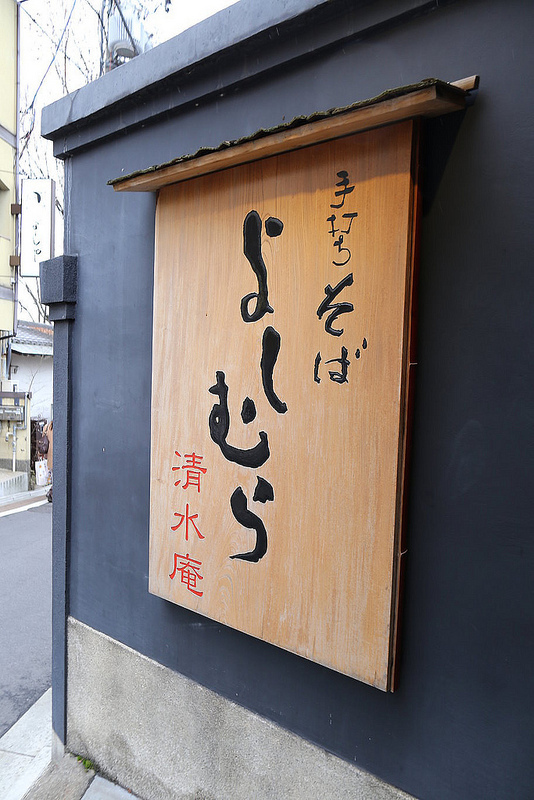 手打ち そば
よしむら
清水庵